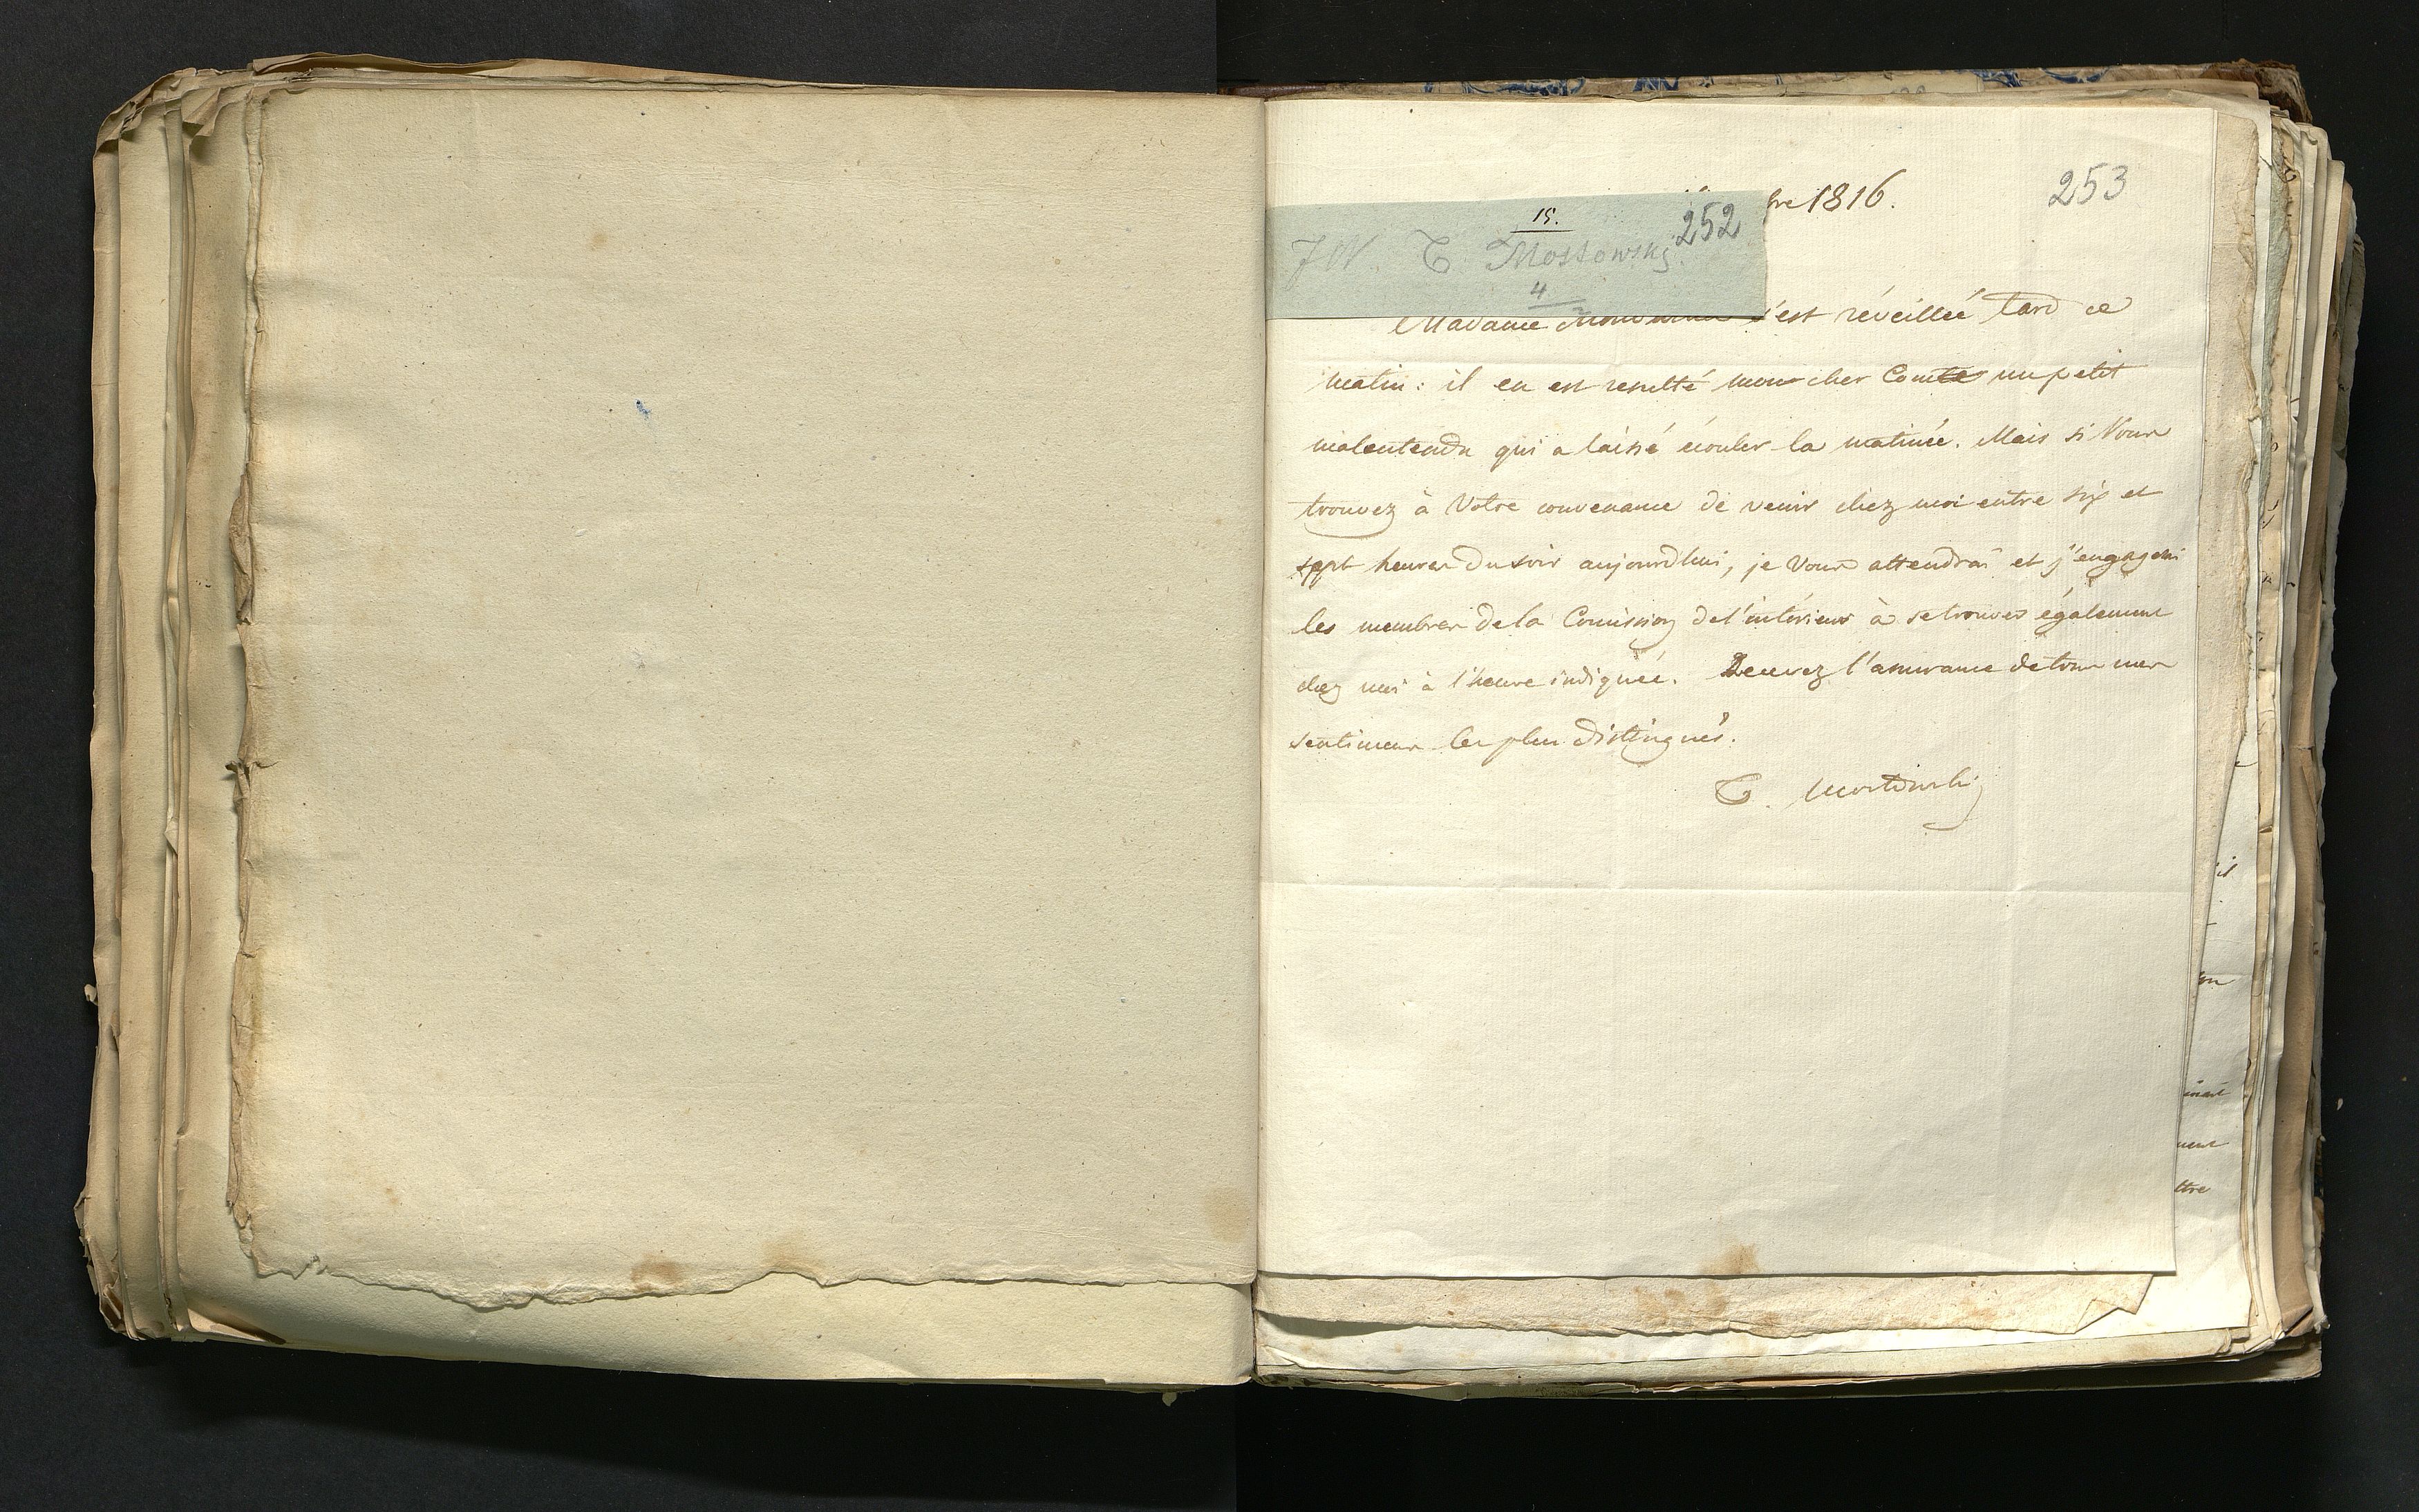 bre 1816.
253
15.
252
JW T. Mostowskj
4
Madame s'est réveillée tard ce
matin: il en est resulté mon cher Comte un petit
malentendu qui a laissé écouler la matinée. Mais si Vous
trouvez à Votre convenance de venir chez moi entre six et
sept heures du soir aujourdhui, je Vous attendrai et j'engagerai
les membres de la Comission de l'intérieur à se trouver également
chez moi à l'heure indiquée. Recevez l'assurance de tous mes
sentimens les plus distingués.
T. Mostowski